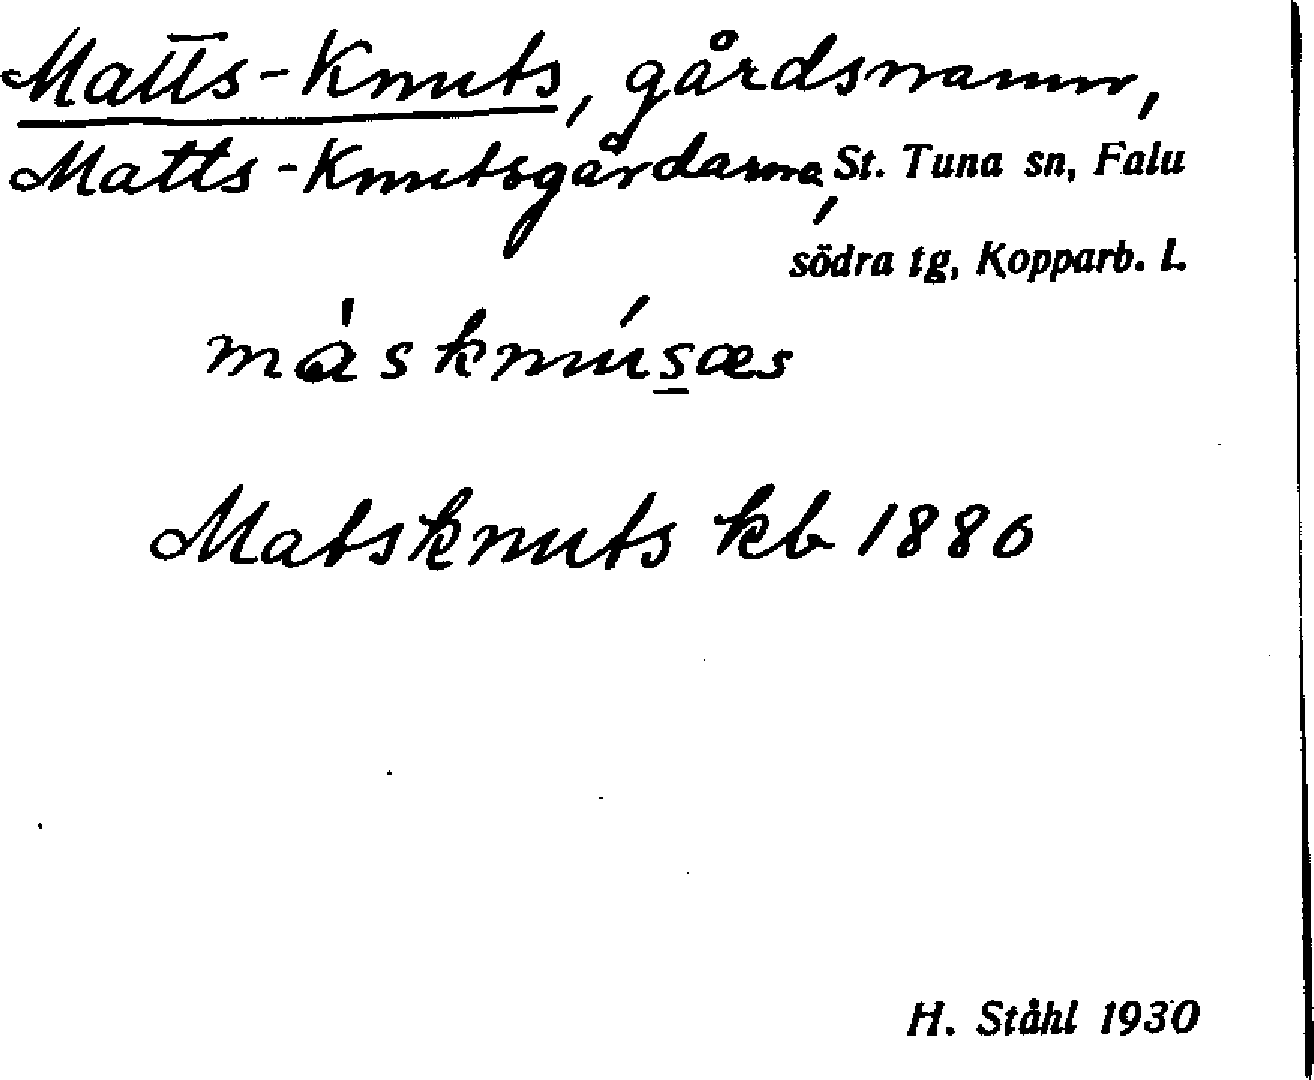 Matts-Knuts, gårdsnamn,
Matts-Knutsgårdarna, St. Tuna sn, Falu
södra tg, Kopparb. l.
Matsknuts kb 1880
H. Ståhl 1930